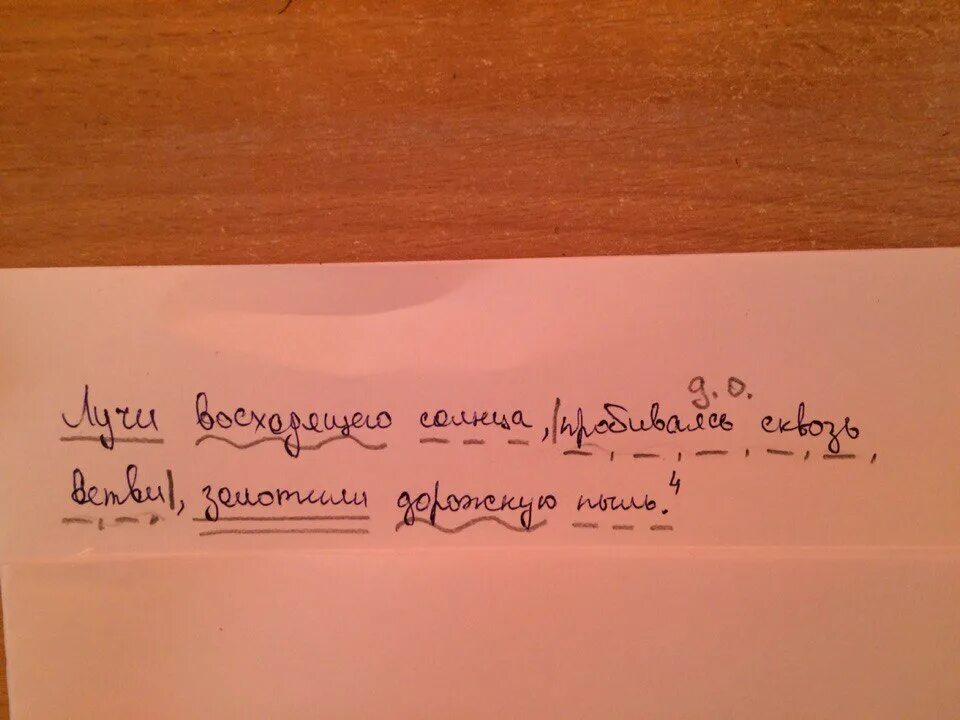 д.о.
Лучи восходящего солнца, |пробиваясь сквозь
ветви|, золотили дорожную пыль.⁴